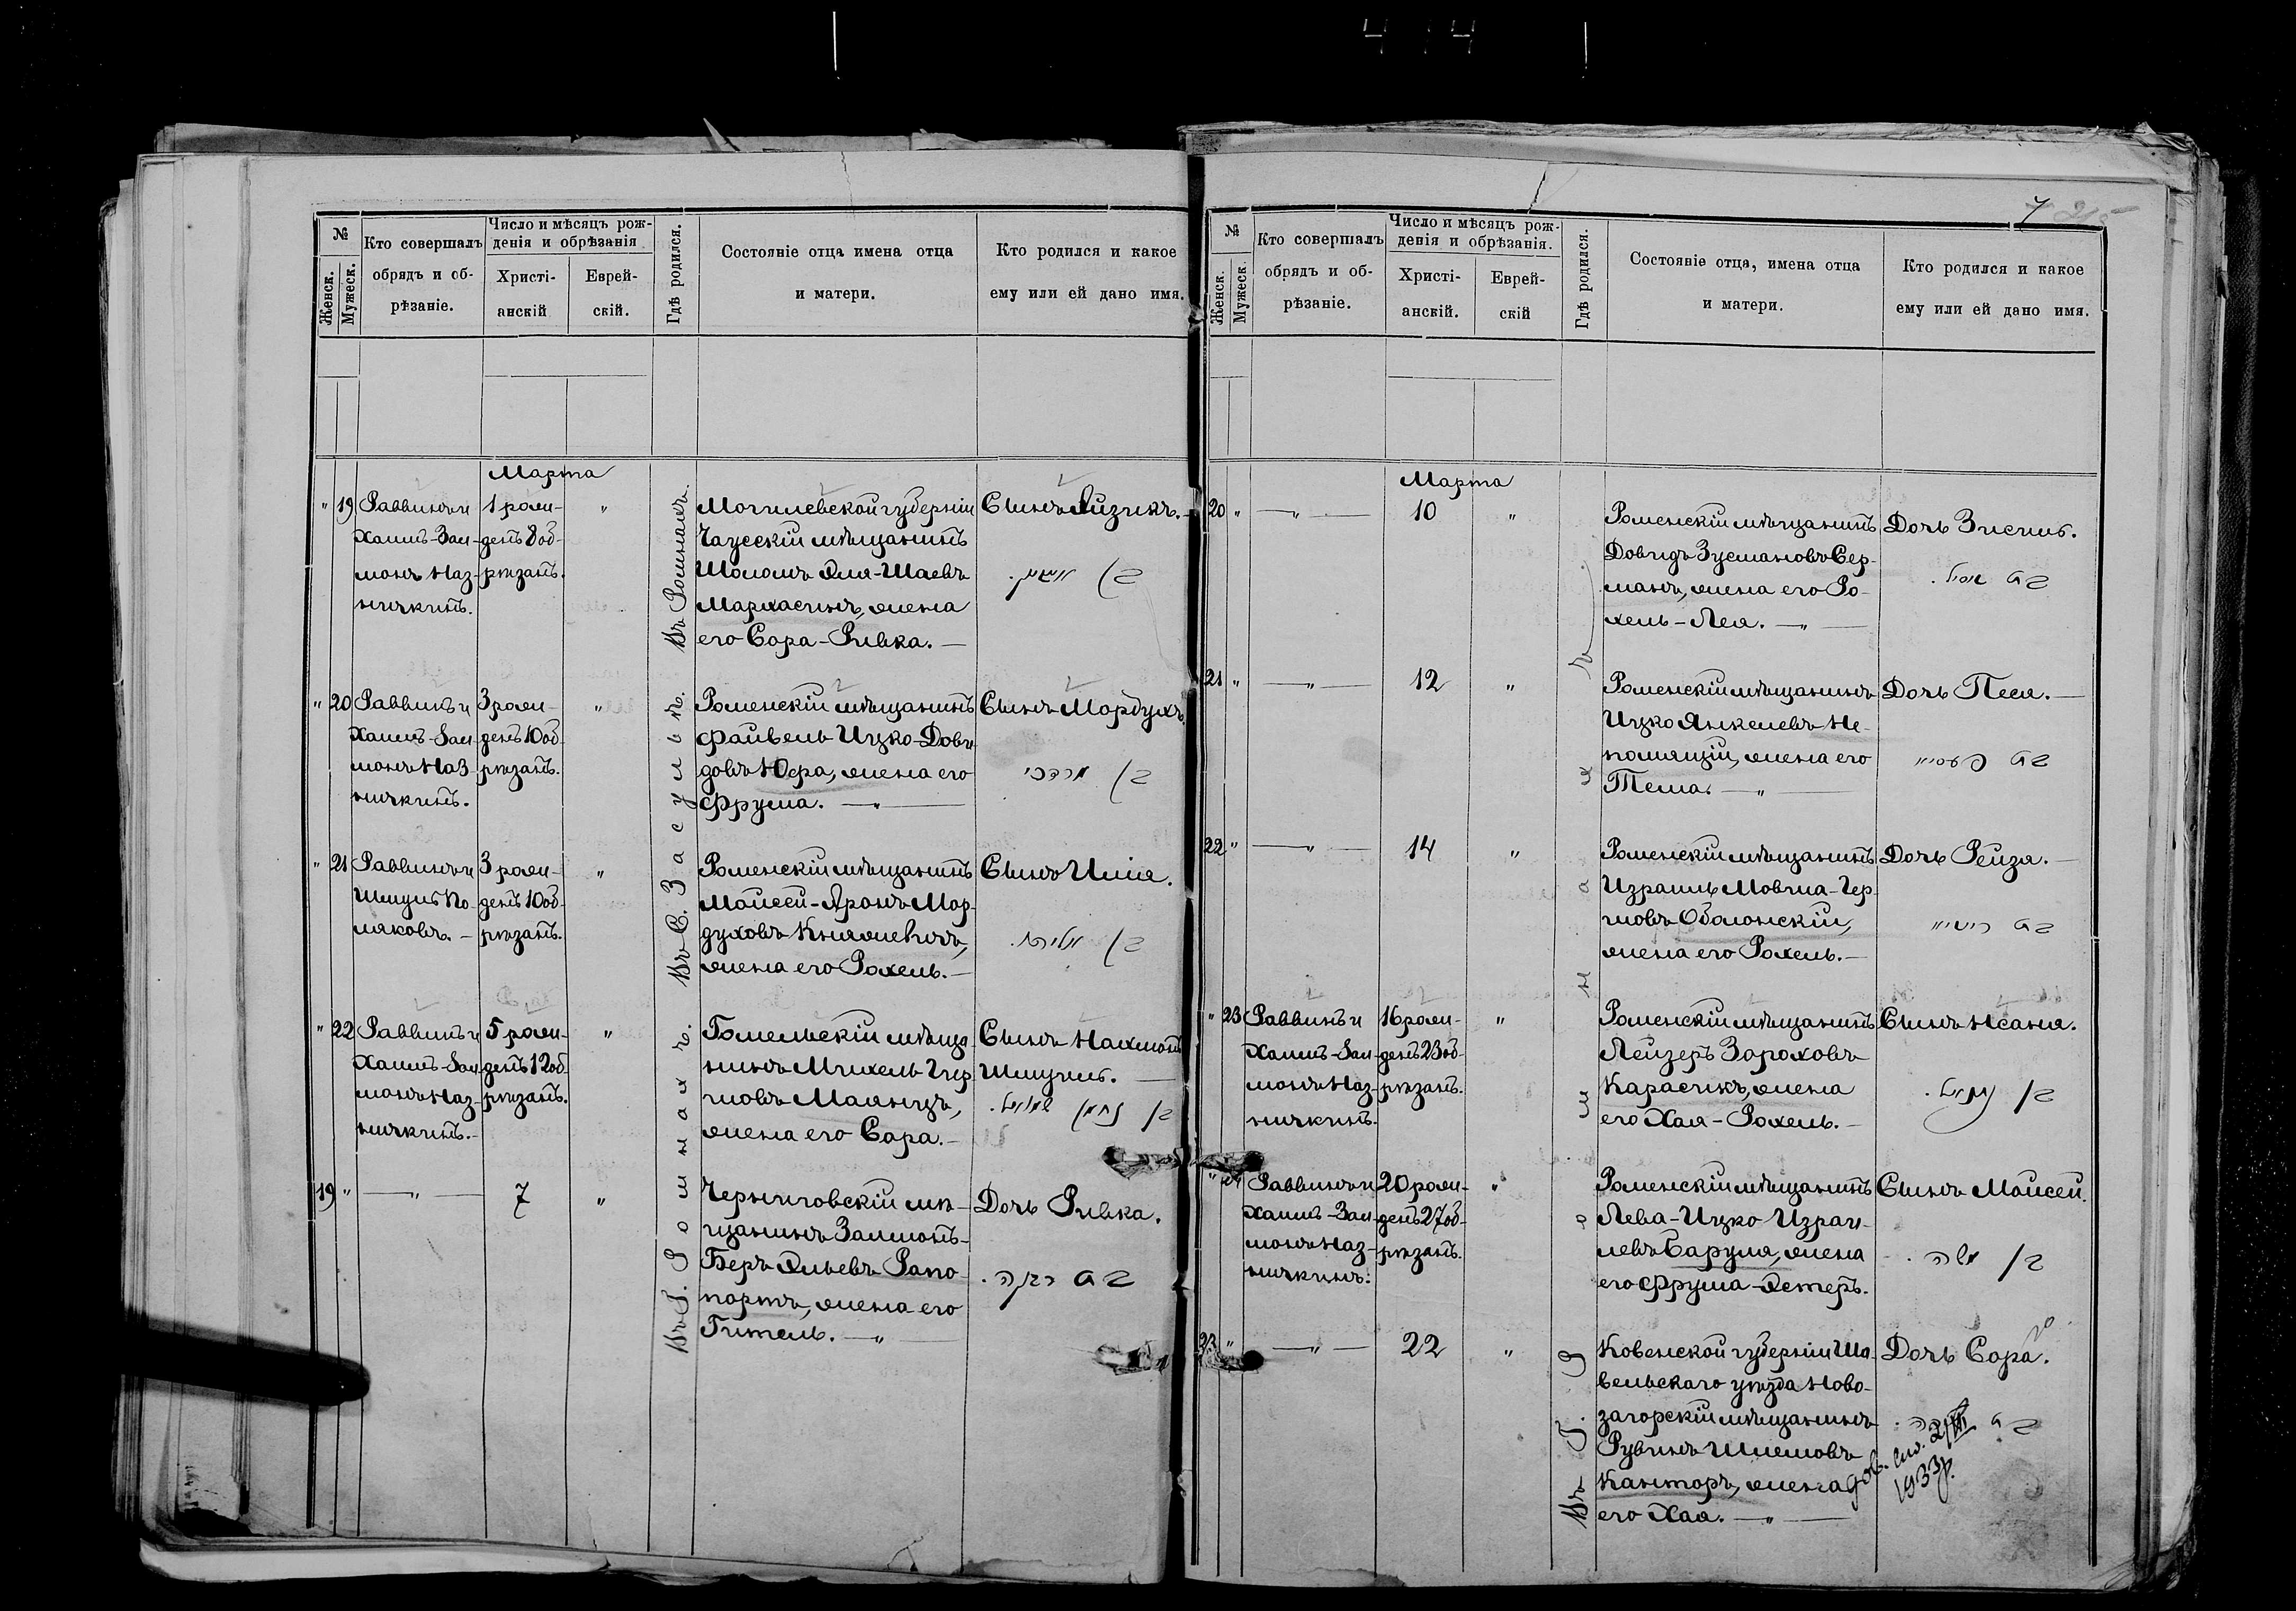 4 14
№
Женск.
Мужеск.
Кто совершалъ
обрядъ и об-
рѣзаніе.
Число и мѣсяцъ рож-
денія и обрѣзанія.
Христі-
анскій
Еврей-
скій.
Гдѣ родился.
Состояніе отца имена отца
и матери.
Кто родился и какое
ему или ей дано имя.
Марта
" 19
Раввинъ и
Хаимъ-Зал-
монъ Наз-
ничкинъ.
1 рож-
денъ 8 об-
рѣзанъ.
"
Въ Ромнахъ.
Могилевской губерніи
Чаусскій мѣщанинъ
Шоломъ Эля-Шаевъ
Мархасинъ, жена
его Сора-Ривка. —
Сынъ Айзикъ. —
" 20
Раввинъ и
Хаимъ-Зал-
монъ Наз-
ничкинъ.
3 рож-
денъ 10 об-
рѣзанъ.
"
Въ С. Засульѣ.
Роменскій мѣщанинъ
Файвель Ицко-Дови-
довъ Юфа, жена его
Фрума. — " —
Сынъ Мордухъ.
בן מרדכי
" 21
Раввинъ и
Шмуль По-
ляковъ. —
3 рож-
денъ 10 об-
рѣзанъ.
"
Роменскій мѣщанинъ
Мойсей-Аронъ Мор-
духовъ Княжевичъ,
жена его Рохель. —
Сынъ Илія.
" 22
Раввинъ и
Хаимъ-Зал-
монъ Наз-
ничкинъ. —
5 рож-
денъ 12 об-
рѣзанъ.
"
Въ Г. Ромнахъ.
Гомельскій мѣща-
нинъ Михель Гир-
шовъ Малянцъ,
жена его Сора. —
Сынъ Нахмонъ
Шмуиль. —
בן נחמן שמואל.
19 "
— " —
7
"
Черниговскій мѣ-
щанинъ Залмонъ-
Беръ Эльевъ Рапо-
портъ, жена его
Гитель. — " —
Дочь Ривка.
בת רבקה.
7 215
№
Женск.
Мужеск.
Кто совершалъ
обрядъ и об-
рѣзаніе.
Число и мѣсяцъ рож-
денія и обрѣзанія.
Христі-
анскій.
Еврей-
скій
Гдѣ родился.
Состояніе отца, имена отца
и матери.
Кто родился и какое
ему или ей дано имя.
Марта
20 "
— " —
10
"
Въ Г. Ромнахъ.
Роменскій мѣщанинъ
Довидъ Зусмановъ Бер-
манъ, жена его Ро-
хель-Лея. — " —
Дочь Зисль.
21 "
— " —
12
"
Роменскій мѣщанинъ
Ицко Янкелевъ Не-
помящій, жена его
Тема. — " —
Дочь Песя. —
22 "
— " —
14
"
Роменскій мѣщанинъ
Израиль Мовша-Гер-
шовъ Оболонскій,
жена его Рохель. —
Дочь Рейза. —
" 23
Раввинъ и
Хаимъ-Зал-
монъ Наз-
ничкинъ.
16 рож-
денъ 23 об-
рѣзанъ.
"
Роменскій мѣщанинъ
Лейзеръ Зороховъ
Карасикъ, жена
его Хая-Рохель. —
" 24
Раввинъ и
Хаимъ-Зал-
монъ Наз-
ничкинъ.
20 рож-
денъ 27 об-
рѣзанъ.
"
Роменскій мѣщанинъ
Лева-Ицко Израи-
левъ Баруля, жена
его Фрума-Эстеръ.
Сынъ Мойсей.
בן משה.
23 "
— " —
22
"
Ковенской губерніи Ша-
вельскаго уѣзда Ново-
загорскій мѣщанинъ
Рувинъ Шлемовъ
Канторъ, жена
его Хая. — " —
Дочь Сора.
1933 р.